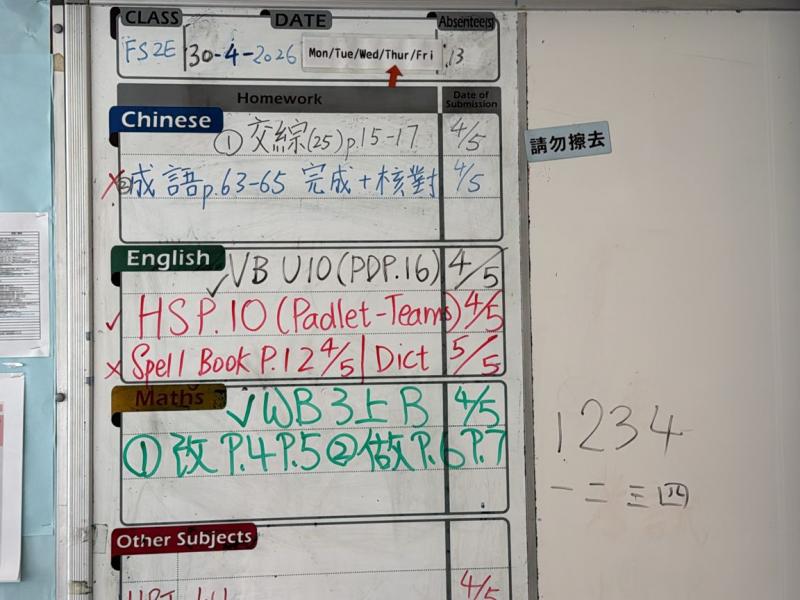 CLASS DATE Absentee(s)
FS2E 30-4-2026 Mon/Tue/Wed/Thur/Fri 13
Homework Date of Submission
Chinese
① 交綜(25)p.15-17 4/5
② 成語p.63-65 完成+核對 4/5
請勿擦去
English
VB U10(PDP.16) 4/5
HSP.10(Padlet-Teams) 4/5
Spell Book P.12 4/5 | Dict 5/5
Maths
WB 3上B 4/5
① 改 P.4P.5 ② 做P.6P.7
1234
一二三四
Other Subjects
4/5